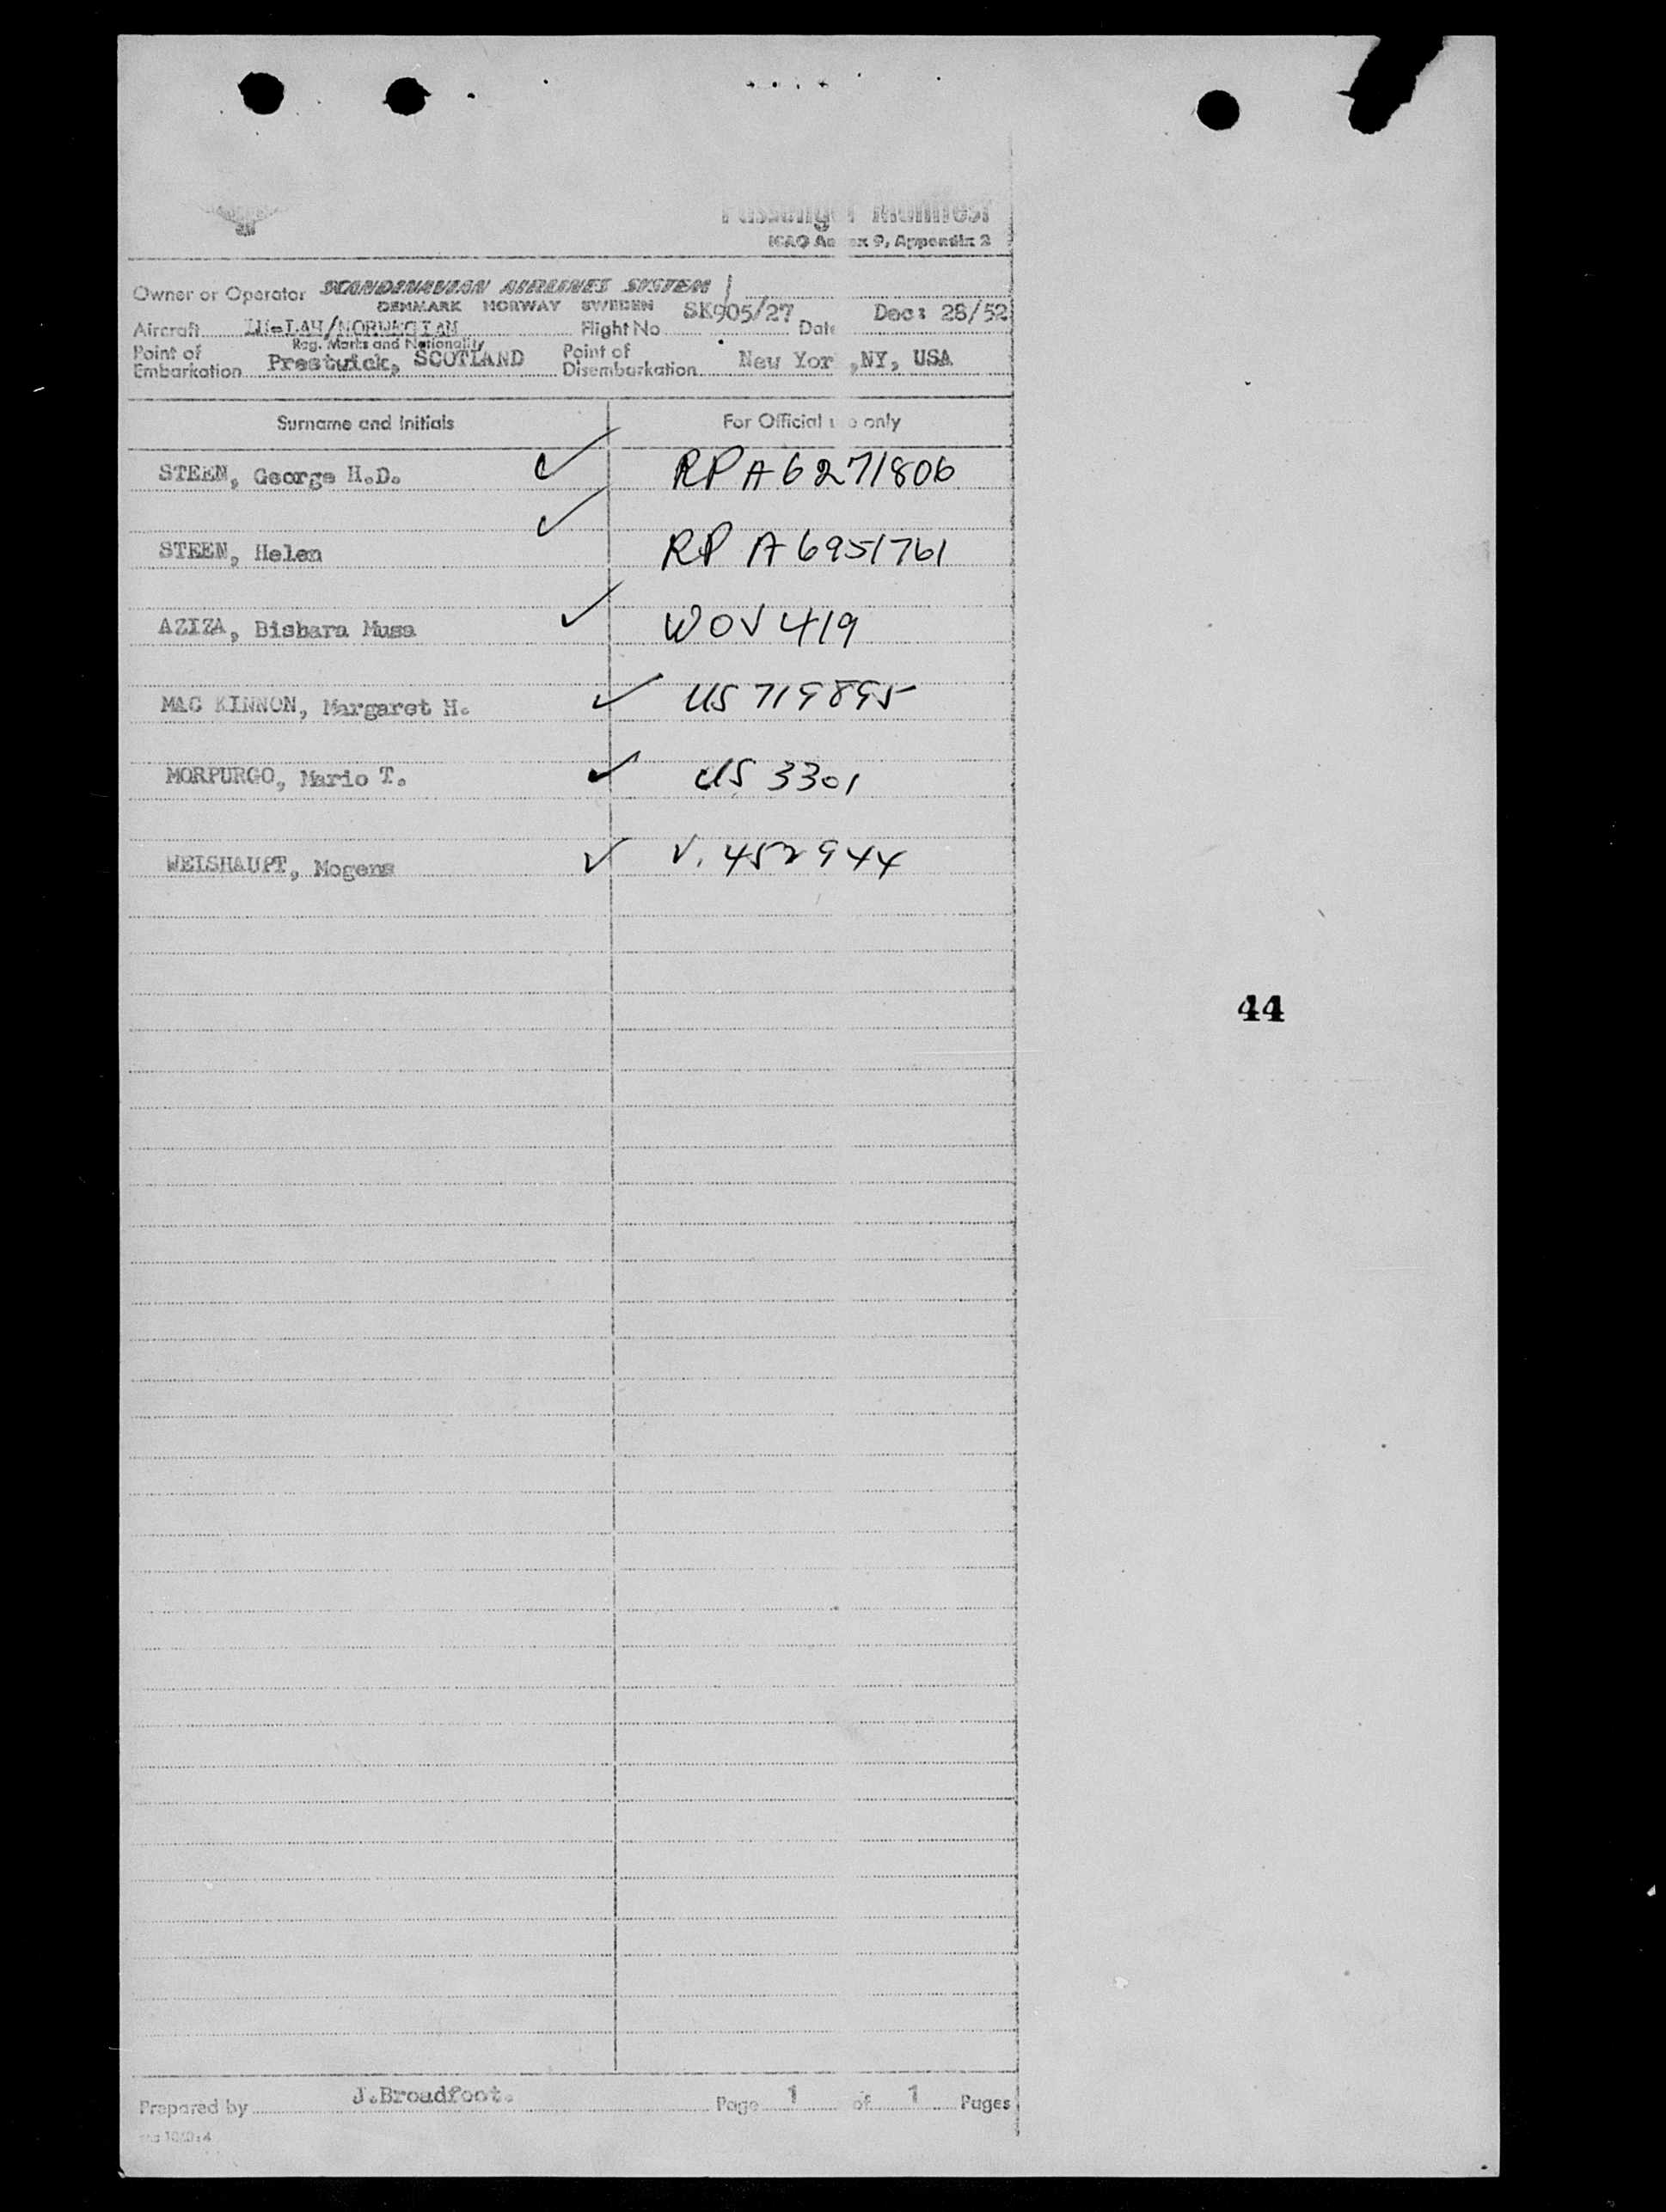 Passenger Manifest
ICAO Annex 9, Appendix 2
Owner or Operator SCANDINAVIAN AIRLINES SYSTEM
DENMARK NORWAY SWEDEN
Aircraft LN-LAH/NORWEGIAN Flight No SK905/27 Date Dec: 28/52
Reg. Marks and Nationality
Point of Embarkation Prestwick, SCOTLAND Point of Disembarkation New Yor ,NY, USA
Surname and Initials For Official use only
STEEN, George H.D. RP A6271806
STEEN, Helen RP A6951761
AZIZA, Bishara Musa WOV 419
MAC KINNON, Margaret H. US 719895
MORPURGO, Mario T. US 3301
WEISHAUPT, Mogens V. 452944
44
Prepared by J.Broadfoot. Page 1 of 1 Pages